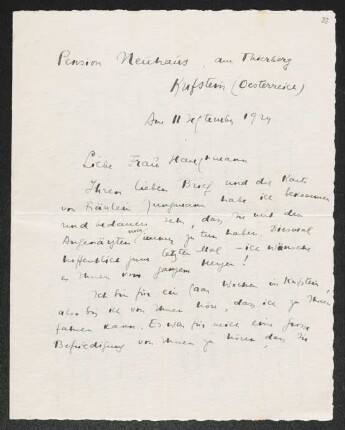 Pension Neuhaus, am Thierberg
Kufstein (Oesterreich)
Am 11 September 1929
Liebe Frau Hauptmann
Ihren lieben Brief und die Karte
von Fräulein Jungmann habe ich bekommen
und bedauere sehr, dass Sie mit den
Augenärzten immer zu tun haben. Diesmal
hoffentlich zum letzten Mal – ich wünsche
es Ihnen vom ganzen Herzen!
Ich bin für ein paar Wochen in Kufstein,
also bis ich von Ihnen höre, dass ich zu Ihnen
fahren kann. Es war für mich eine grosse
Befriedigung von Ihnen zu hören, dass Sie